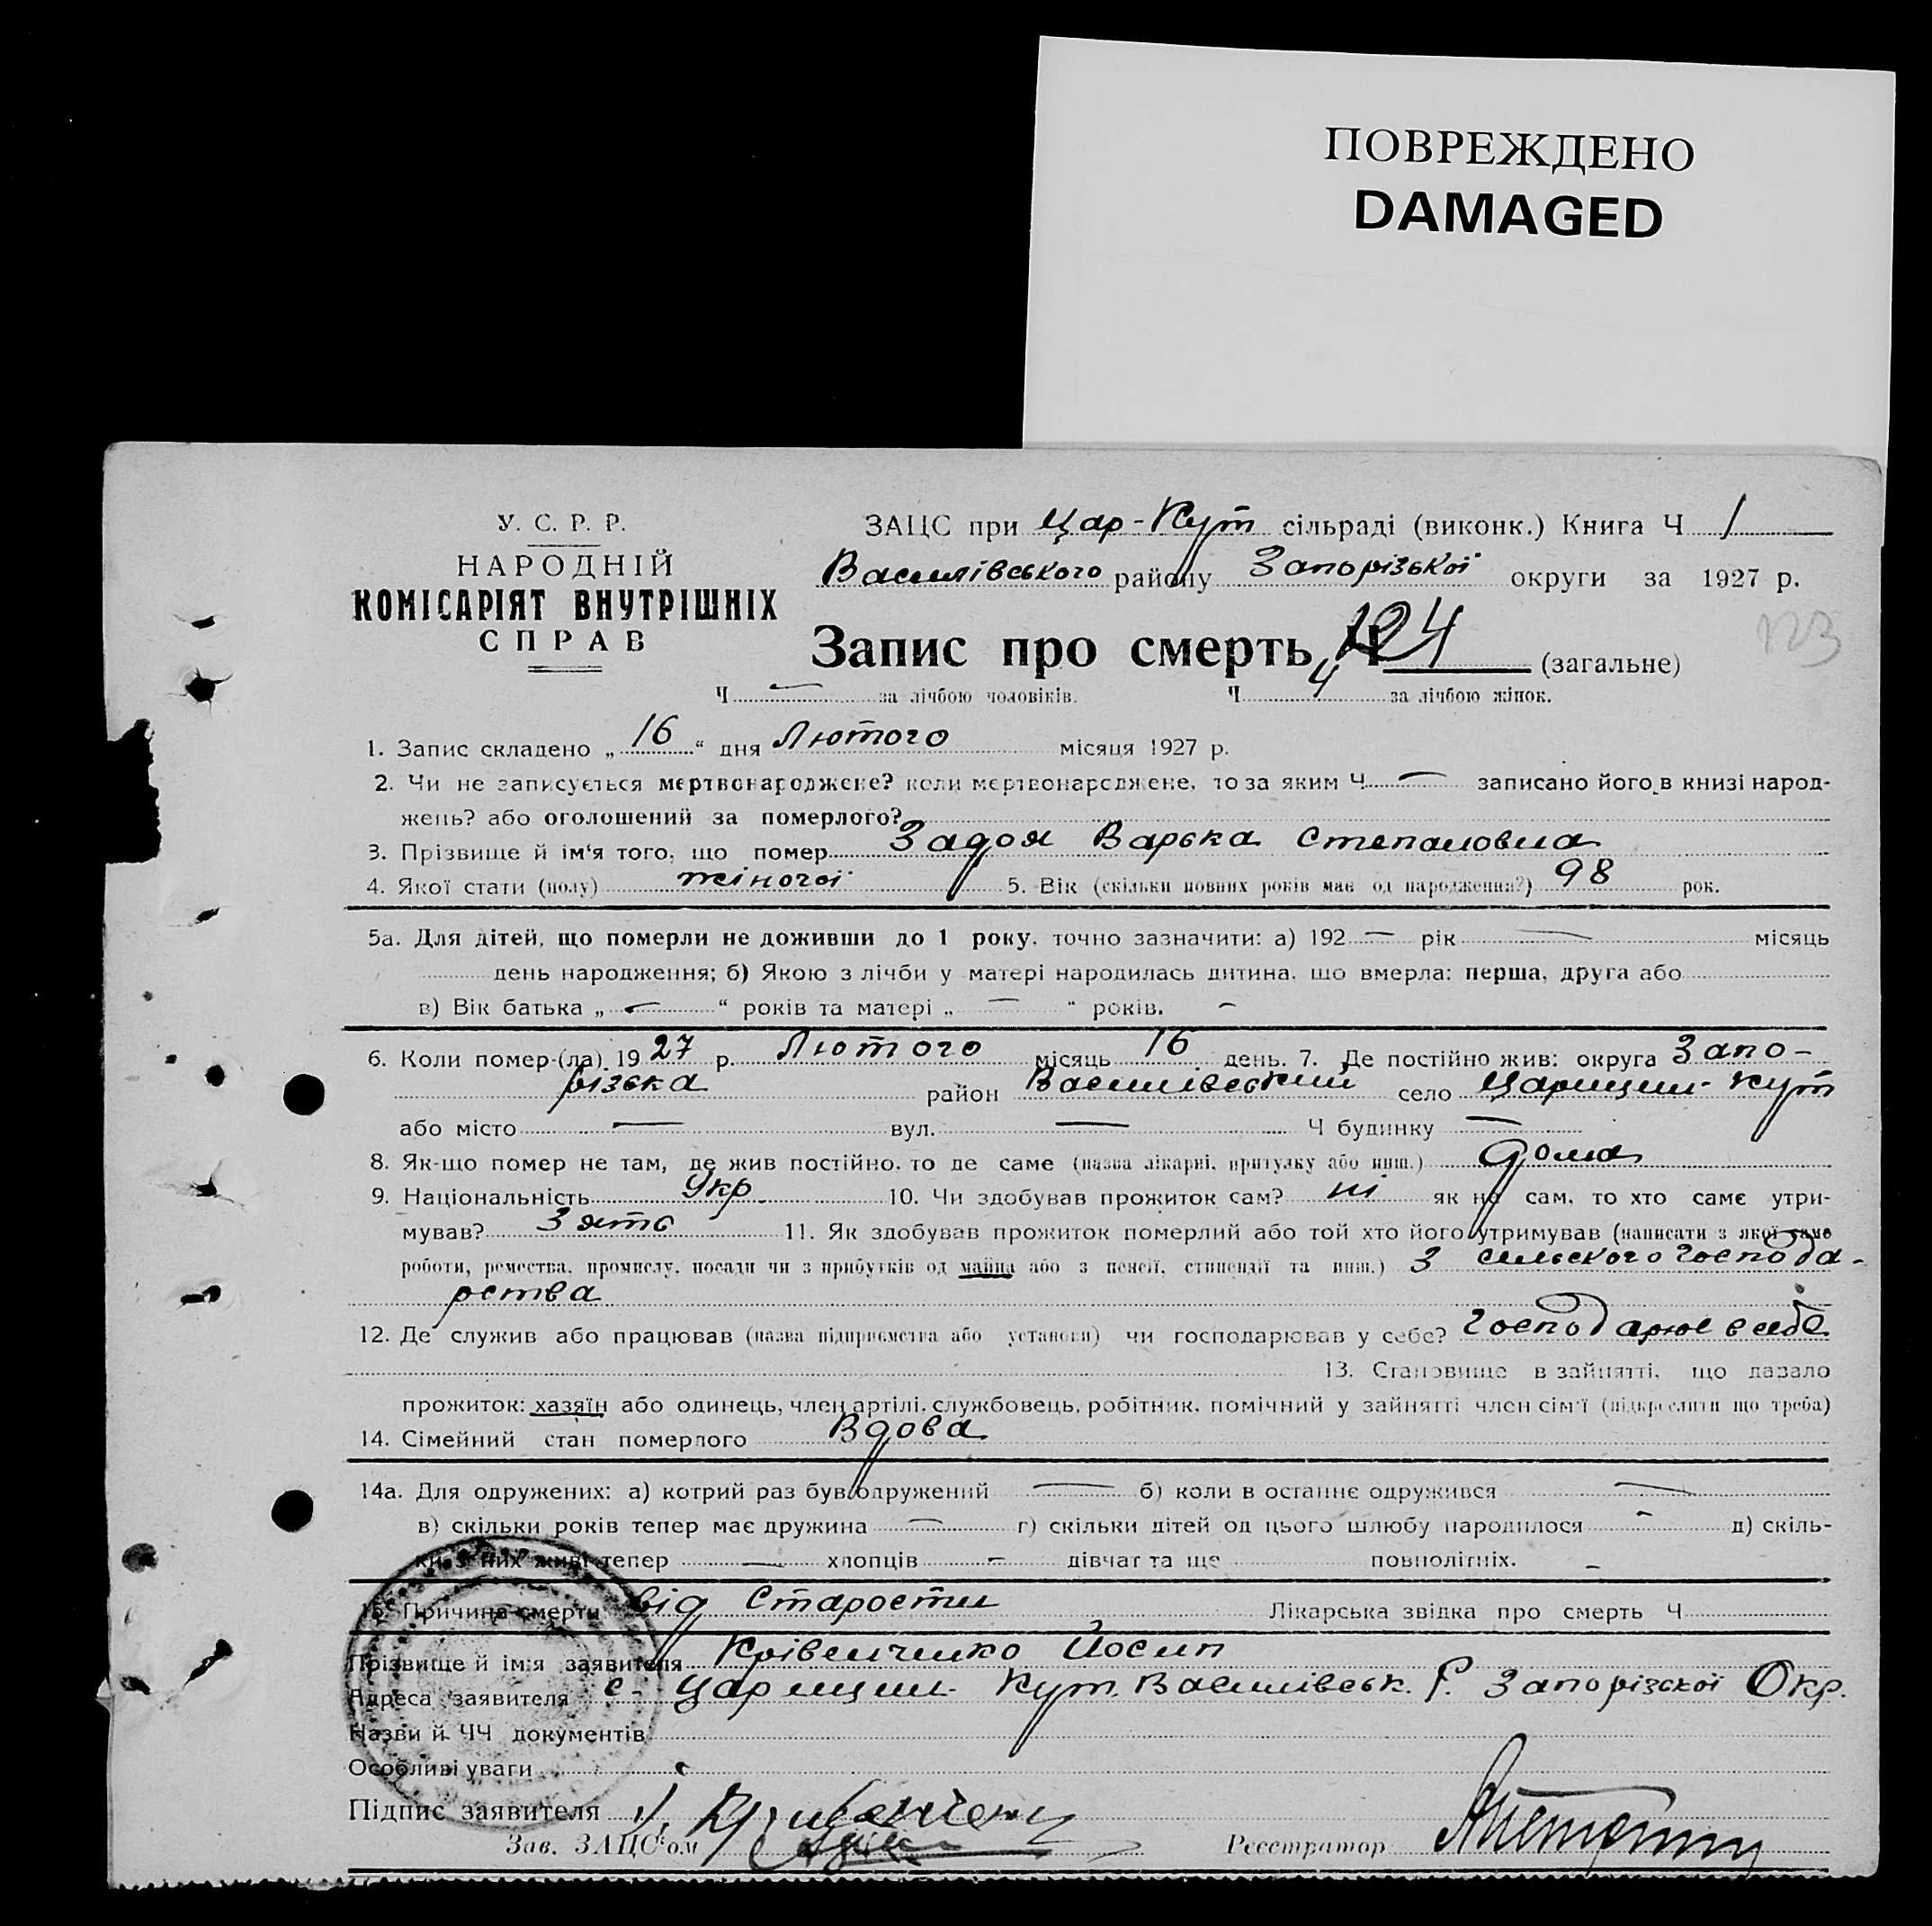 ПОВРЕЖДЕНО
DAMAGED
У. С. Р. Р.
НАРОДНІЙ
КОМІСАРІЯТ ВНУТРІШНІХ
СПРАВ
ЗАЦС при Цар-Кут сільраді (виконк.) Книга Ч 1
Василівського району Запорізької округи за 1927 р.
Запис про смерть Ч 124 (загальне)
123
Ч — за лічбою чоловіків. Ч 4 за лічбою жінок.
1. Запис складено „ 16 “ дня Лютого місяця 1927 р.
2. Чи не записується мертвонароджене? коли мертвонароджене, то за яким Ч — записано його в книзі народ-
жень? або оголошений за померлого?
3. Прізвище й ім‘я того, що помер Задоя Варька Степановна
4. Якої стати (полу) жіночої 5. Вік (скільки повних років має од народження?) 98 рок.
5а. Для дітей, що померли не доживши до 1 року, точно зазначити: а) 192 — рік — місяць
день народження; б) Якою з лічби у матері народилась дитина, що вмерла: перша, друга або
в) Вік батька „ — “ років та матері „ — “ років. -
6. Коли помер-(ла) 1927 р. Лютого місяць 16 день. 7. Де постійно жив: округа Запо-
різька район Василівський село Царицин-Кут
або місто — вул. — Ч будинку —
8. Як-що помер не там, де жив постійно, то де саме (назва лікарні, притулку або инш.) дома
9. Національність Укр. 10. Чи здобував прожиток сам? ні як не сам, то хто саме утри-
мував? Зять 11. Як здобував прожиток померлий або той хто його утримував (написати з якої саме
роботи, ремества, промислу, посади чи з прибутків од майна або з пенсії, стипендії та инш.) З сильского господа-
рства
12. Де служив або працював (назва підприємства або установи) чи господарював у себе? Господарює в себе
13. Становище в зайнятті, що давало
прожиток: хазяїн або одинець, член артілі, службовець, робітник, помічний у зайнятті член сім'ї (підкреслити що треба)
14. Сімейний стан померлого Вдова
14а. Для одружених: а) котрий раз був одружений — б) коли в останнє одружився —
в) скільки років тепер має дружина — г) скільки дітей од цього шлюбу народилося - д) скіль-
ки з них живі тепер — хлопців - дівчат та ще повнолітніх. -
15. Причина смерти Від Старости Лікарська звідка про смерть Ч
Прізвище й ім'я заявителя Крівенченко Йосип
Адреса заявителя с. Царицин-Кут. Василівськ. Р. Запорізской Окр.
Назви й ЧЧ документів
Особливі уваги
Підпис заявителя
Зав. ЗАЦС'ом Реєстратор